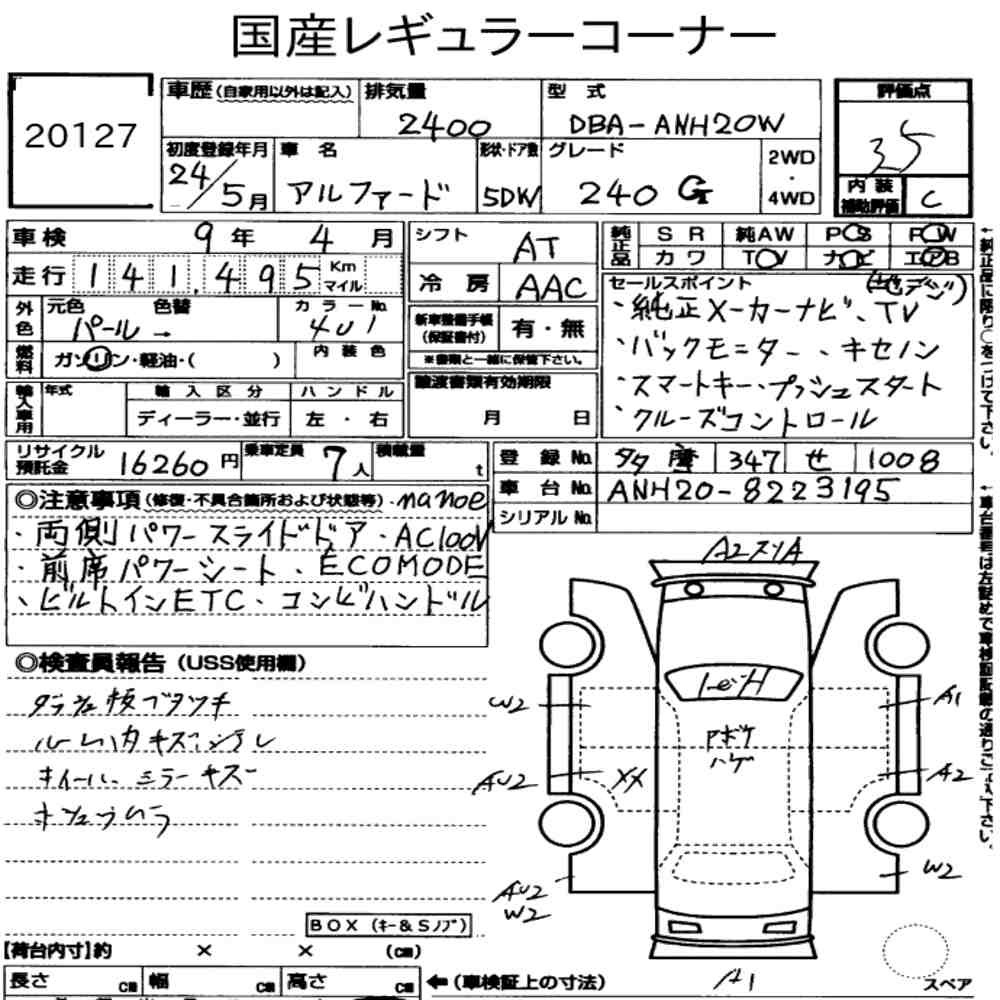 国産レギュラーコーナー
20127
車歴(自家用以外は記入) 排気量 2400
型式 DBA-ANH20W
評価点 35
内装補助評価 C
初度登録年月 24/5月
車名 アルファード
形状・ドア数 5DW
グレード 240 G
2WD・4WD
車検 9年 4月
走行 141,495 Km マイル
シフト AT
冷房 AAC
純正品 SR 純AW PS PW
カワ TV ナビ エアB
(地デジ)
外色 元色 パール→ 色替 カラーNo. 4U1
燃料 ガソリン・軽油・( ) 内装色
新車整備手帳(保証書付) 有・無
※書類と一緒に保管下さい。
セールスポイント
・純正メーカーナビ、TV
・バックモニター、キセノン
・スマートキー・プッシュスタート
・クルーズコントロール
輸入車用 年式 輸入区分 ハンドル
ディーラー・並行 左・右
譲渡書類有効期限
月 日
リサイクル預託金 16260円
乗車定員 7人
積載量 t
登録No. 多摩 347 せ 1008
車台No. ANH20-8223195
シリアルNo.
◎注意事項(修復・不具合箇所および状態等)・nanoe
・両側パワースライドドア・AC100V
・前席パワーシート・ECOMODE
・ビルトインETC・コンビハンドル
◎検査員報告(USS使用欄)
ホイール、ミラーキズ
A2スリA
W2
A1
アボケ
ハゲ
AU2
XX
A2
AU2
W2
W2
A1
BOX(キー&Sノブ)
【荷台内寸】約 × × (cm)
長さ cm 幅 cm 高さ cm
←(車検証上の寸法)
スペア